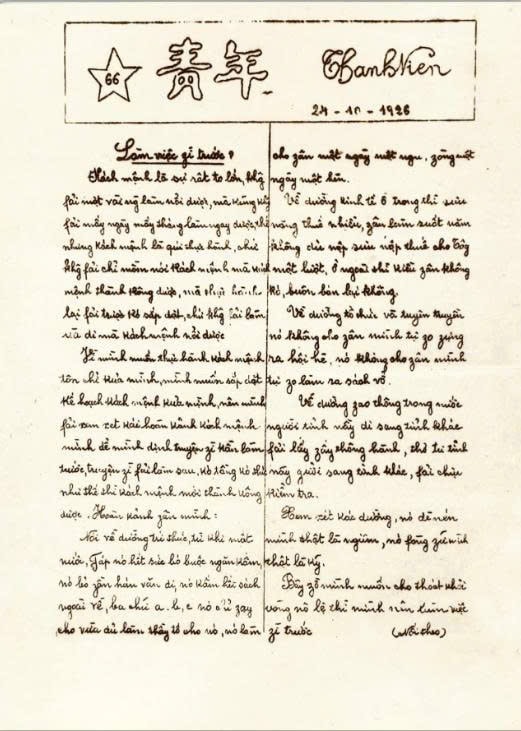 66
青年
Thanh Niên
24 - 10 - 1926
Làm việc gì trước?
Kách mệnh là sự rất to lớn, khg
fải một vài ng làm nổi được, mà kũng khg
fải mấy ngày mấy tháng làm ngay được, thế
nhưng kách mệnh là qúi thực hành, chứ
khg fải chỉ nằm nói kách mệnh mà kách
mệnh thành kông được, mà thực hành
lại fải trước kó sắp đặt, chứ khg fải làm
mà kách mệnh nổi được
Vì mình muốn thực hành kách mệnh
tôn chỉ kủa mình, mình muốn sắp đặt
kế hoạch kách mệnh kủa mệnh, nên mình
fải xem xét kái hoàn kảnh kách mệnh
mình để mình định truyện zì kần làm
trước, truyện zì fải làm sau, kó
như thế thì kách mệnh mới thành kông
được. Hoàn kảnh zân mình:
Nói về đường trí thức, từ khi mất
nước, Fáp nó hết sức bó buộc ngăn kấm,
nó bỏ zân hán văn đi, nó kấm kái sách
ngoài về, ba chữ a, b, c nó zạy
cho vừa đủ làm thầy tớ cho nó, nó làm
cho zân một ngày một ngu, zống một
ngày một hèn.
Về đường kinh tế ở trong thì sưu
nặng thuế nhiều, zân làm suốt năm
không đủ nộp sưu nộp thuế cho Tây
một lượt, ở ngoài thì kiều zân không
kó, buôn bán lại không.
Về đường tổ chức và tuyên truyền
nó không cho zân mình tự zo zựng
ra hội hè, nó không cho zân mình
tự zo làm ra sách vở.
Về đường zao thông trong nước
người tỉnh nầy đi sang tỉnh khác
fải lấy zấy thông hành, thư từ tỉnh
nầy gưởi sang tỉnh khác, fải chịu
kiểm tra.
Xem xét kác đường, nó đè nén
mình thật là ngiêm, nó fòng zữ mình
thật là kỹ.
Bây zờ mình muốn cho thoát khỏi
vòng nô lệ thì mình nên làm việc
zì trước (Nối theo)